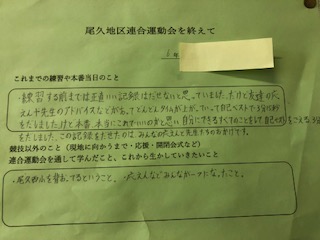 尾久地区連合運動会を終えて
6年
これまでの練習や本番当日のこと
・練習する前までは正直いい記録はだせないと思っていました。だけど友達の応
えんや先生のアドバイスなどがあってどんどんタイムが上がっていって自己ベストで3位
をだしましたけど本番、本当にこれでいいのかと思い自分にできるすべてのことをして自己ベストをこえる3位
をだしました。この記録をだせたのはみんなの応えんと先生たちのおかげです。
競技以外のこと（現地に向かうまで・応援・開閉会式など）
連合運動会を通して学んだこと、これから生かしていきたいこと
・尾久西小を背おってるということ。・応えんなどみんなが一つになったこと。